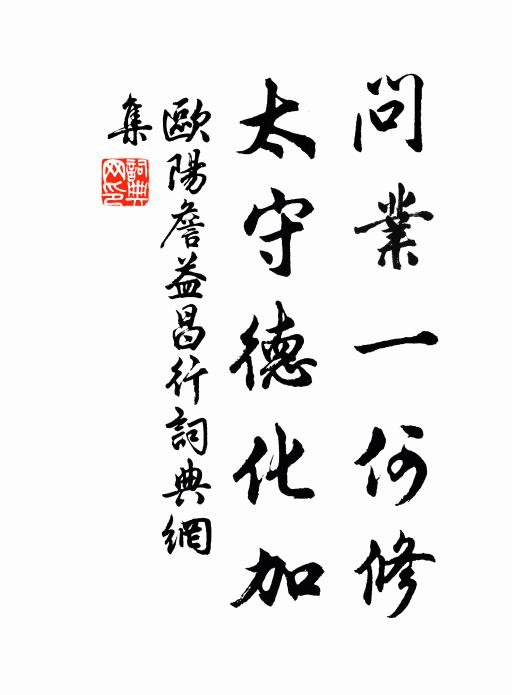 問業一何修
太守德化加
歐陽詹益昌行詞典網
集
詞典
网印